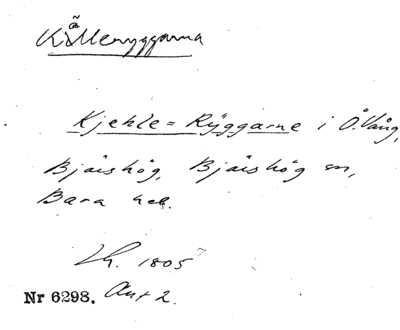 Källeryggarna
Kjehle=Ryggarne i Ö.Vång,
Bjäshög, Bjäshög sn,
Bara hd.
Lh. 1805
Nr 6298. Akt 2.